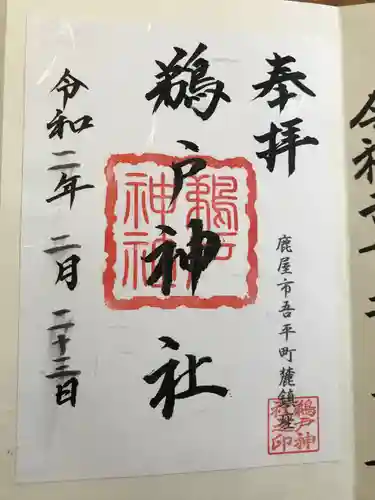 奉拝
鹿屋市吾平町麓鎮座
鵜戸神社
鵜戸
神社
鵜戸神
社之印
令和二年二月二十三日